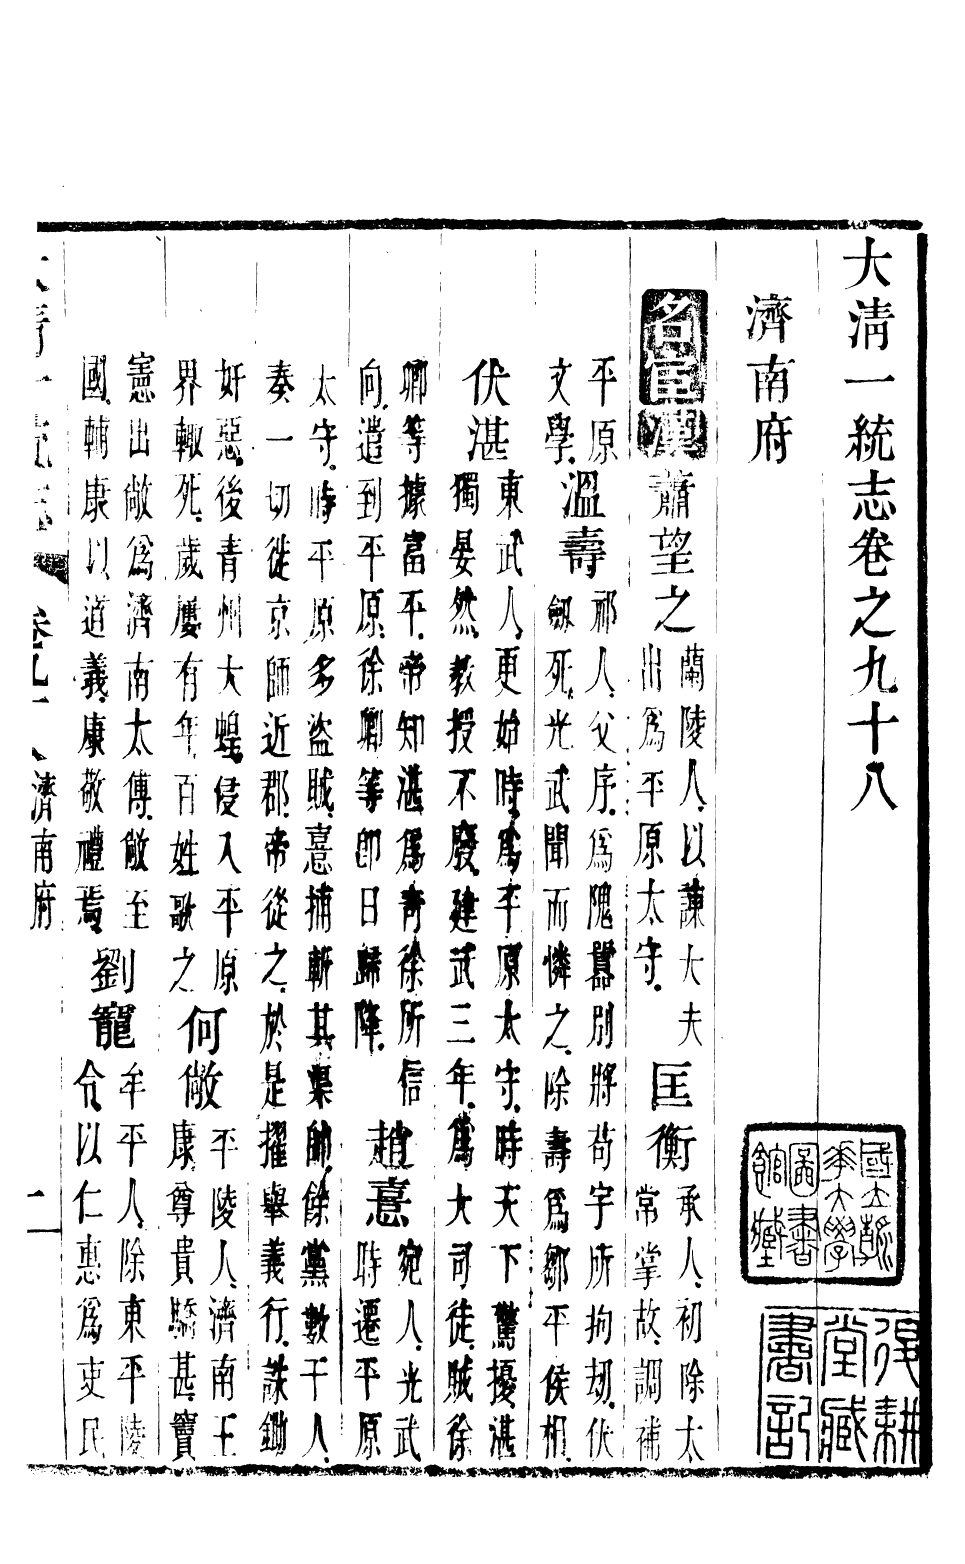 大清一統志卷之九十八
濟南府
名宦
漢
蕭望之
蘭陵人、以諫大夫
出爲平原太守、
匡衡
承人、初除太
常掌故、調補
平原
文學、
溫壽
祁人、父序、爲隗囂別將苟宇所拘劫、伏
劔死、光武聞而憐之、除壽爲鄒平侯相、
伏湛
東武人、更始時、爲平原太守、時天下驚擾、湛
獨晏然、教授不廢、建武三年、爲大司徒、賊徐
卿等據富平、帝知湛爲青徐所信
向、遣到平原、徐卿等卽日歸降、
趙憙
宛人、光武
時遷平原
太守、時平原多盜賊、憙捕斬其渠帥、餘黨數千人、
奏一切徙京師近郡、帝從之、於是擢舉義行、誅鋤
奸惡、後青州大蝗、侵入平原
界輙死、歲屢有年、百姓歌之
何敞
平陵人、濟南王
康尊貴驕甚、竇
憲出敞爲濟南太傅、敞至
國、輔康以道義、康敬禮焉、
劉寵
牟平人、除東平陵
令、以仁惠爲吏民
卷九十八
濟南府
一
國立清華大學圖書館藏